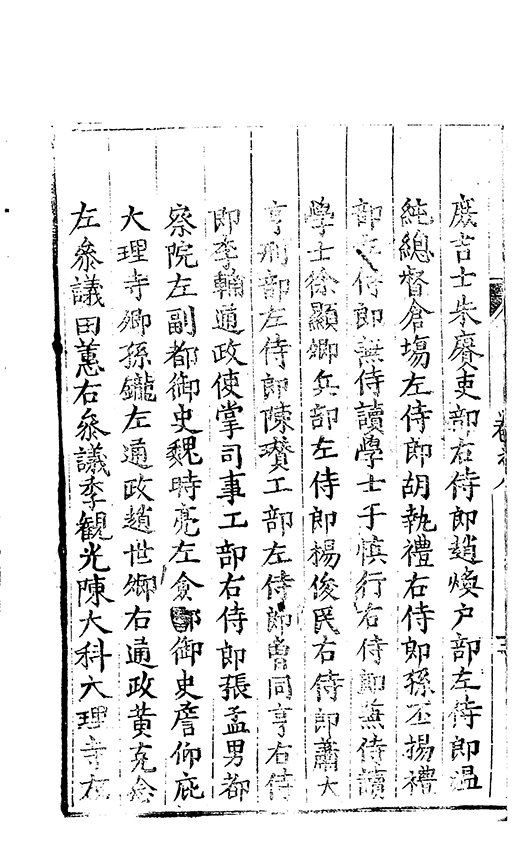 庶吉士朱賡吏部右侍郎趙煥戶部左侍郎溫
純總督倉場左侍郎胡執禮右侍郎孫丕揚禮
部左侍郎兼侍讀學士于慎行右侍郎兼侍讀
學士徐顯卿兵部左侍郎楊俊民右侍郎蕭大
亨刑部左侍郎陳瓚工部左侍郎曾同亨右侍
郎李輔通政使掌司事工部右侍郎張孟男都
察院左副都御史魏時亮左僉都御史詹仰庇
大理寺卿孫鑨左通政趙世卿右通政黃克念
左叅議田蕙右叅議李觀光陳大科大理寺左